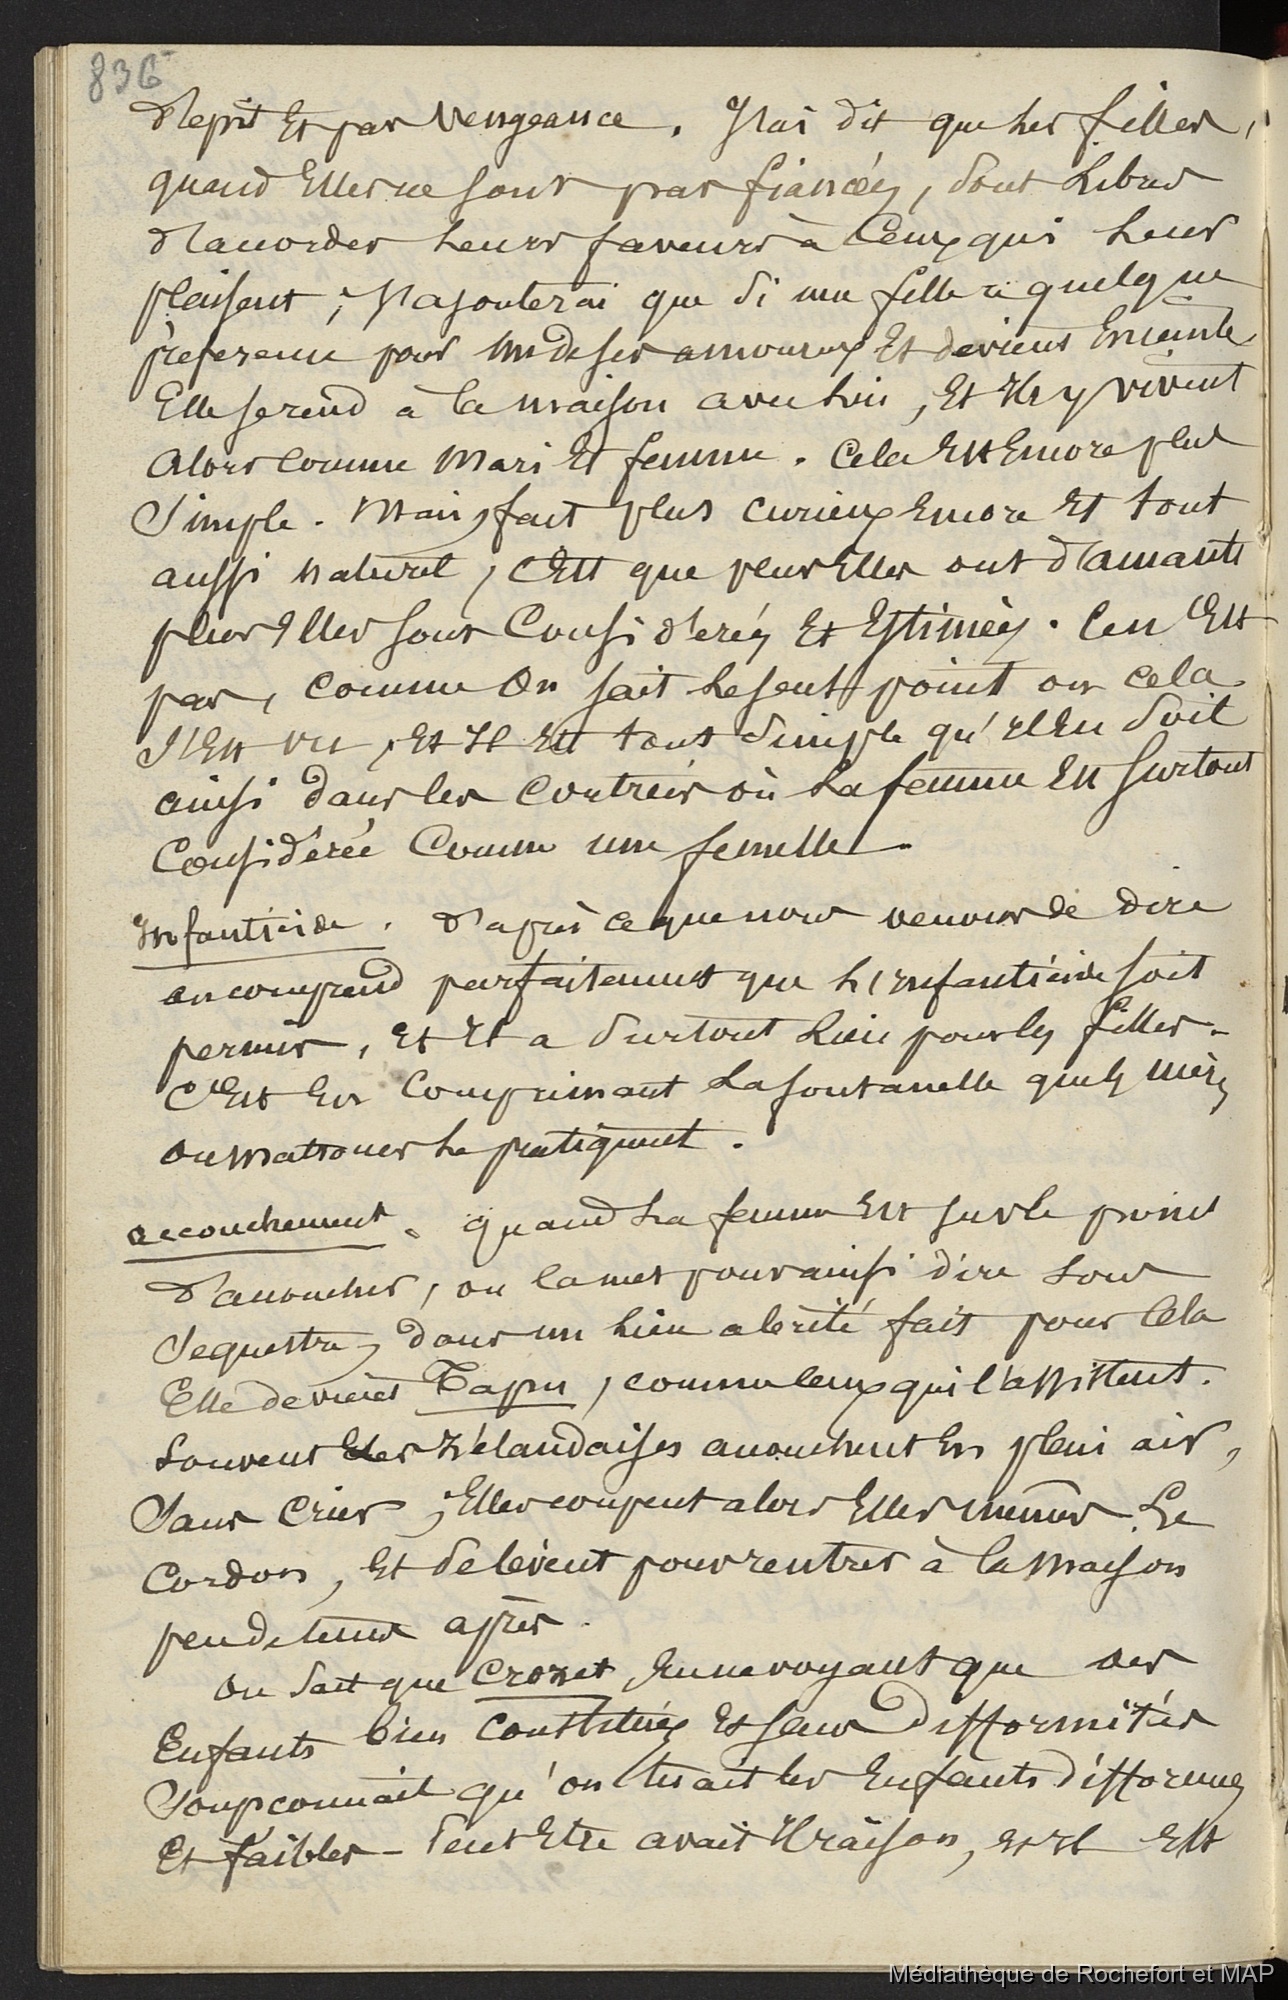 836
depit et par vengeance. J'ai dit que les filles,
quand Elles ne sont pas fiancées, sont libres
d'accorder leurs faveurs à Ceux qui leur
plaisent ; J'ajouterai que si une fille a quelque
preference pour un de ses amoureux Et devient Enceinte
Elle se rend à la maison avec lui, Et Ils y vivent
alors Comme Mari Et femme. Cela Est Encore plus
Simple. Mais, fait plus curieux Encore Et tout
aussi naturel, C'Est que plus Elles ont d'amants
plus Elles sont Considerées Et Estimées. Ce n'Est
pas, comme On sait le seul point où cela
s'Est vu, Et Il Est tout simple qu'Il En soit
ainsi dans les Contrées où la femme Est surtout
Considérée Comme une femelle.
Infanticide. D'après ce que nous venons de dire
on comprend parfaitement que l'Infanticide soit
permis, Et Il a surtout lieu pour les filles.
C'Est En Comprimant la fontanelle que les mères
ou matrones le pratiquent.
accouchement. quand la femme Est sur le point
d'accoucher, on la met pour ainsi dire sous
sequestre, dans un lieu abrité fait pour Cela
Elle devient Tapu, comme ceux qui l'assistent.
Souvent les Zélandaises accouchent En plein air,
Sans Crier ; Elles coupent alors Elles mêmes Le
Cordon, Et se lèvent pour rentrer à la maison
peu de temps après.
On sait que Crozet, En ne voyant que des
Enfants bien Constitués Et sans difformités
Soupconnait qu'on tuait les Enfants difformes
Et faibles – Peut Etre avait Il raison, Et Il Est
Médiathèque de Rochefort et MAP